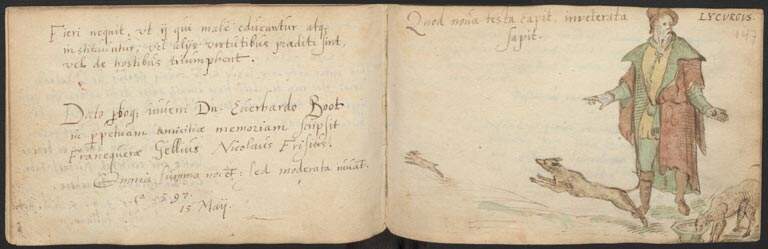 Fieri nequit, vt ij qui male educantur atq;
instituuntur, vel alijs virtutibus praediti sint,
vel de hostibus triumphent.
Dato pbogj inveni Dn. Everhardo Boot
in ppetuam amicitiae memoriam scripsit
Franequerae Gellius Nicolaus Frisius.
Omnia summa nocēt: sed moderata iuuāt.
Aº 1597.
15 Maij.
Quod noua testa capit, inveterata
sapit.
LYCURGUS.
147